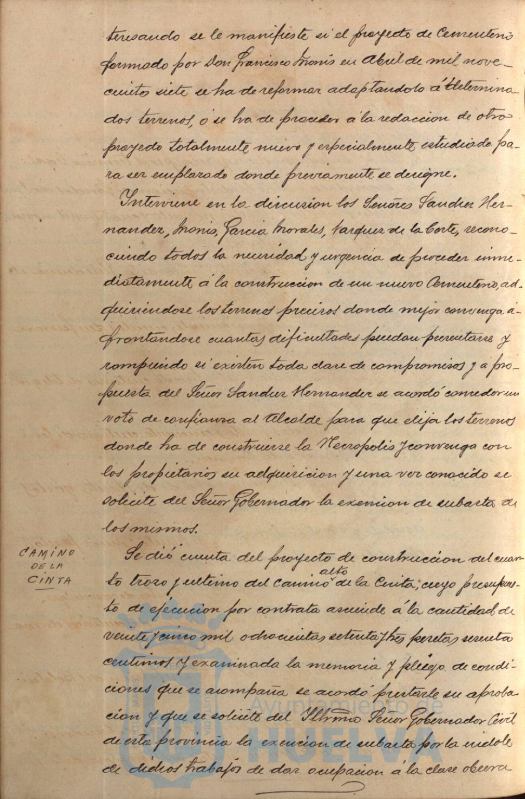 teresando se le manifieste si el proyecto de Cementerio
formado por Don Francisco Monis en Abril de mil nove-
cientos siete se ha de reformar adaptandolo á determina-
dos terrenos, ó se ha de proceder á la redaccion de otro
proyecto totalmente nuevo y especialmente estudiado pa-
ra ser emplazado donde previamente se designe.
Interviene en la discusion los Señores Sanchez Her-
nandez, Monis, Garcia Morales, Vazquez de la Corte, recono-
ciendo todos la necesidad y urgencia de proceder inme-
diatamente á la construccion de un nuevo Cementerio, ad-
quiriendose los terrenos precisos donde mejor convenga a-
frontandose cuantas dificultades puedan presentarse y
rompiendo si existen toda clase de compromisos y a pro-
puesta del Señor Sanchez Hernandez se acordó conceder un
voto de confianza al Alcalde para que elija los terrenos
donde ha de construirse la Necropolis y convenga con
los propietarios su adquisicion y una vez conocido se
solicite del Señor Gobernador la exencion de subasta de
los mismos.
CAMINO
DE LA
CINTA
Se dió cuenta del proyecto de construccion del cuar-
to trozo y ultimo del camino alto de la Cinta; cuyo presupues-
to de ejecucion por contrata asciende á la cantidad de
veinte y cinco mil ochocientas setenta y tres pesetas sesenta
centimos y examinada la memoria y pliego de condi-
ciones que se acompaña se acordó prestarle su aproba-
cion y que se solicite del Iltrmo Señor Gobernador Civil
de esta provincia la exencion de subasta por la indole
de dichos trabajos de dar ocupacion á la clase obrera
Ayuntamiento de
HUELVA